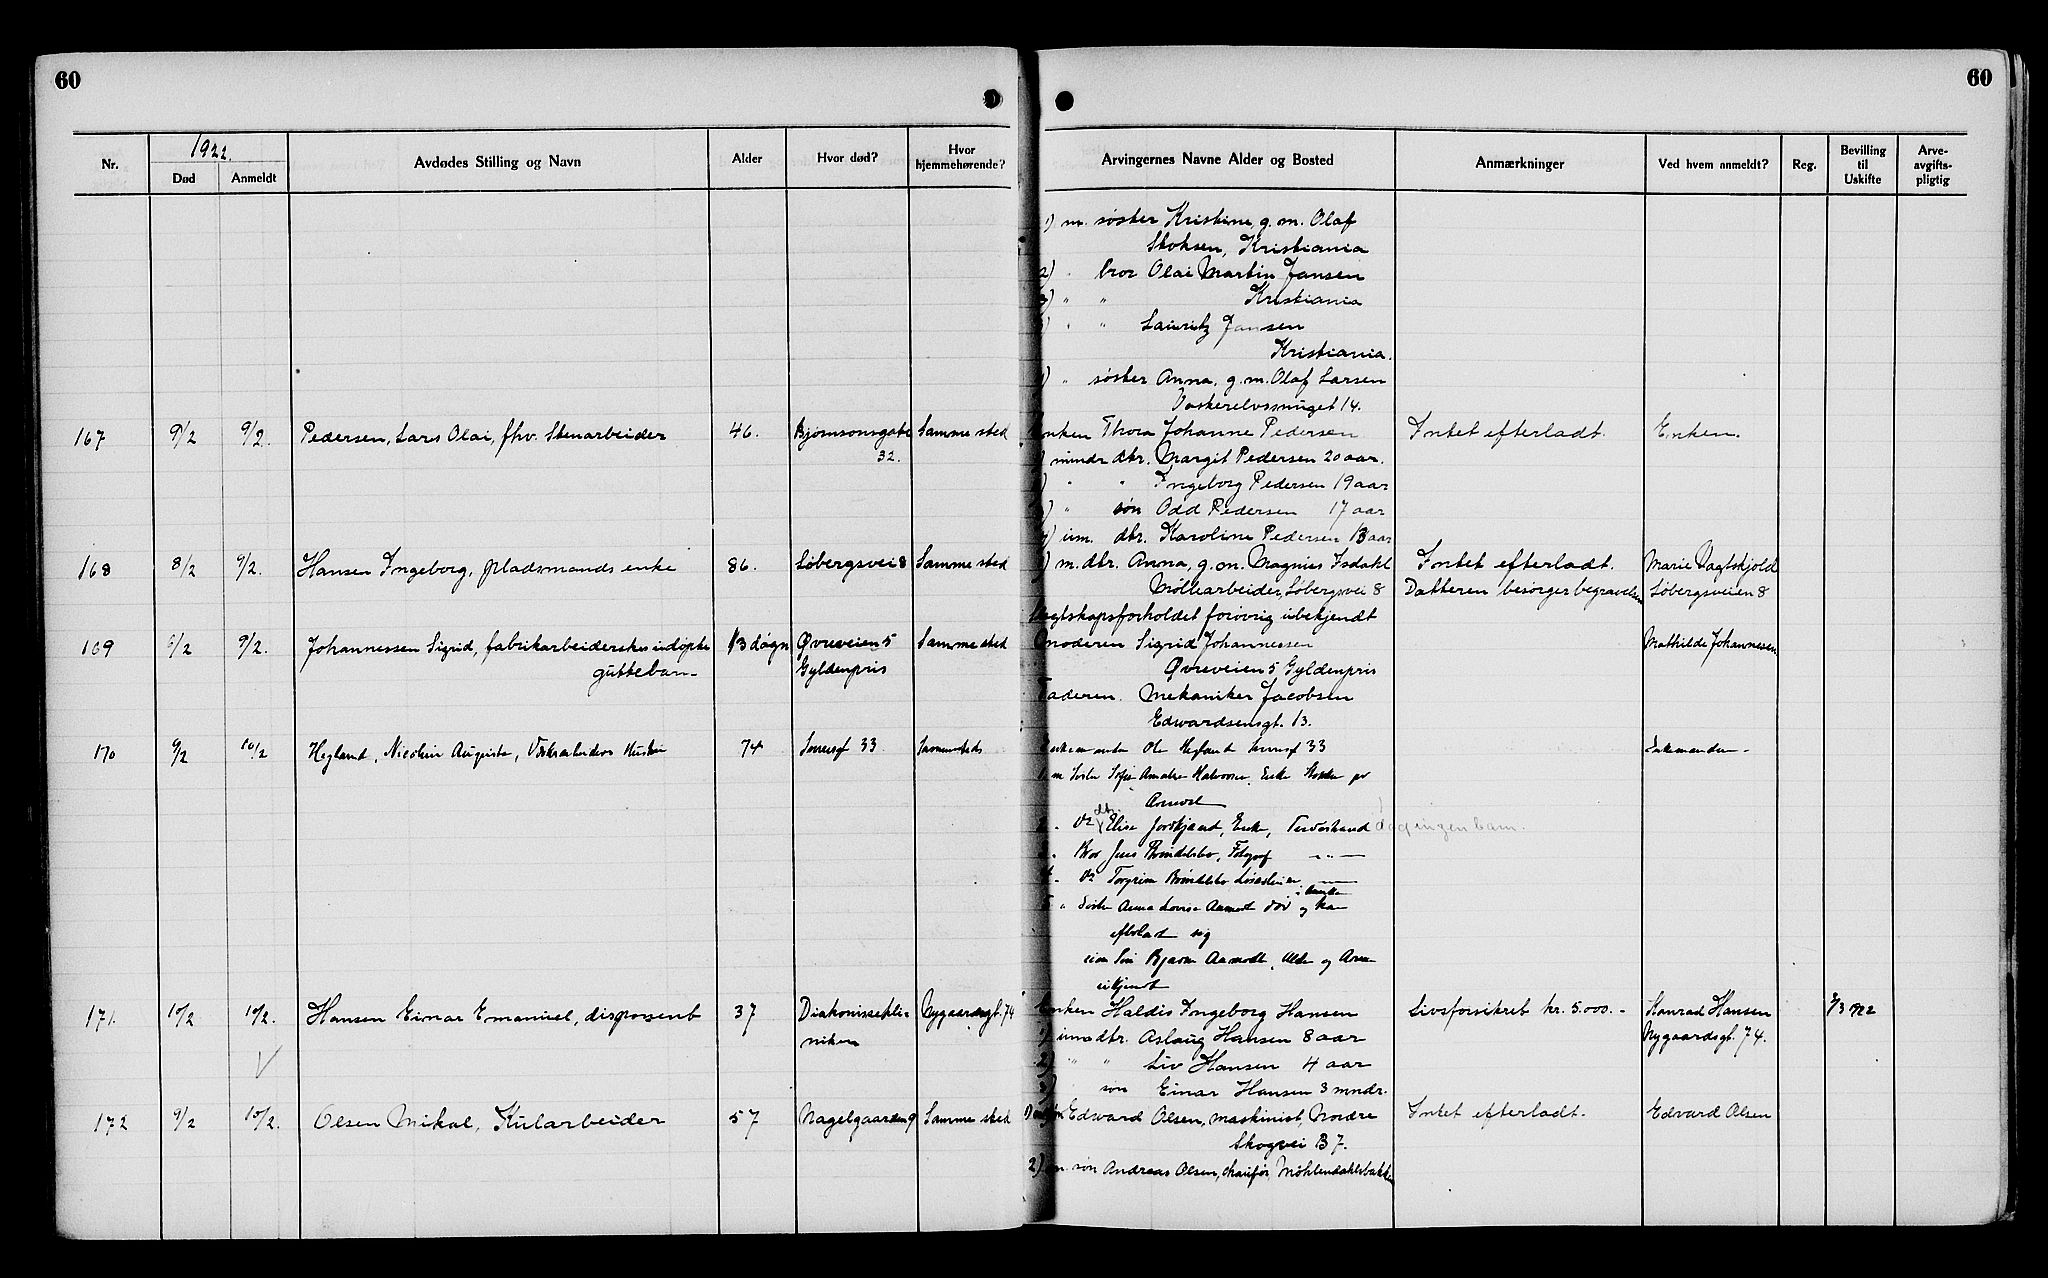 60
60
1922.
Nr.
Død
Anmeldt
Avdødes Stilling og Navn
Alder
Hvor død?
Hvor hjemmehørende?
Arvingernes Navne Alder og Bosted
Anmærkninger
Ved hvem anmeldt?
Reg.
Bevilling til Uskifte
Arve-avgifts-pligtig
1) m. søster Kristine, g.m. Olaf
Stoksen, Kristiania
2) " bror Olai Martin Jansen
3) " " Kristiania
" " Lauritz Jansen
Kristiania.
) " søster Anna, g.m. Olaf Larsen
14.
167 9/2 9/2. Pedersen, Lars Olai, fhv. Stenarbeider 46. Bjørnsonsgate Samme sted Enken Thora Johanne Pedersen Intet efterladt. Enken.
32. ) mindr dtr. Margit Pedersen 20 aar.
) " " Ingeborg Pedersen 19 aar
) " søn Odd Pedersen 17 aar
) um. dtr. Karoline Pedersen 13 aar
168 8/2 9/2. Hansen Ingeborg, pladsmands enke 86. Løbergsvei 8 Samme sted ) m. dtr. Anna, g.m. Magnus Isdahl Intet efterladt. Marie Vagtskjold
Møllearbeider, Løbergsvei 8 Datteren besørger begravelsen Løbergsveien 8
Slegtskapsforholdet forøvrig ubekjendt
169 6/2 9/2. Johannessen Sigrid, fabrikarbeiderskes udøpte 13 døgn Øvreveien 5 Samme sted Moderen Sigrid Johannessen Mathilde Johannessen
guttebarn Gyldenpris Øvreveien 5 Gyldenpris
Faderen. Mekaniker Jacobsen
Edwardsensgt. 13.
170 9/2 10/2 Hegland, Nicoline Augusta, Hustru 74 33 Sammesteds Enkemanden Ole Hegland 33 Enkemanden
1. m Søster Sofie Amalie Halvorsen, Enke
dtr.
Elise Enke, Tvedestrand dog ingen barn.
Bror Jens Fotograf — " —
Torgrim
" Søster Anna Lovise Aamodt død i Amerika og har
efterladt sig
en Søn Bjarne Aamodt, Alder og
ukjendt
171. 10/2 10/2. Hansen Einar Emanuel, disponent 37 Diakonissekli- Nygaardsgt. 74 Enken Haldis Ingeborg Hansen Livsforsikret kr. 5.000.- Konrad Hansen 7/3 922
niken 1) um dtr. Aslaug Hansen 8 aar Nygaardsgt. 74.
2) " " Liv Hansen 4 aar
3) søn Einar Hansen 3 mndr.
172 9/2 10/2. Olsen Mikal, Kularbeider 57 Nagelgaarden 9 Samme sted 1) m søn Edward Olsen, maskinist, Nordre Intet efterladt. Edvard Olsen
Skogvei B 7.
2) m. søn Andreas Olsen, chaufør, Møhlendahlsbakken